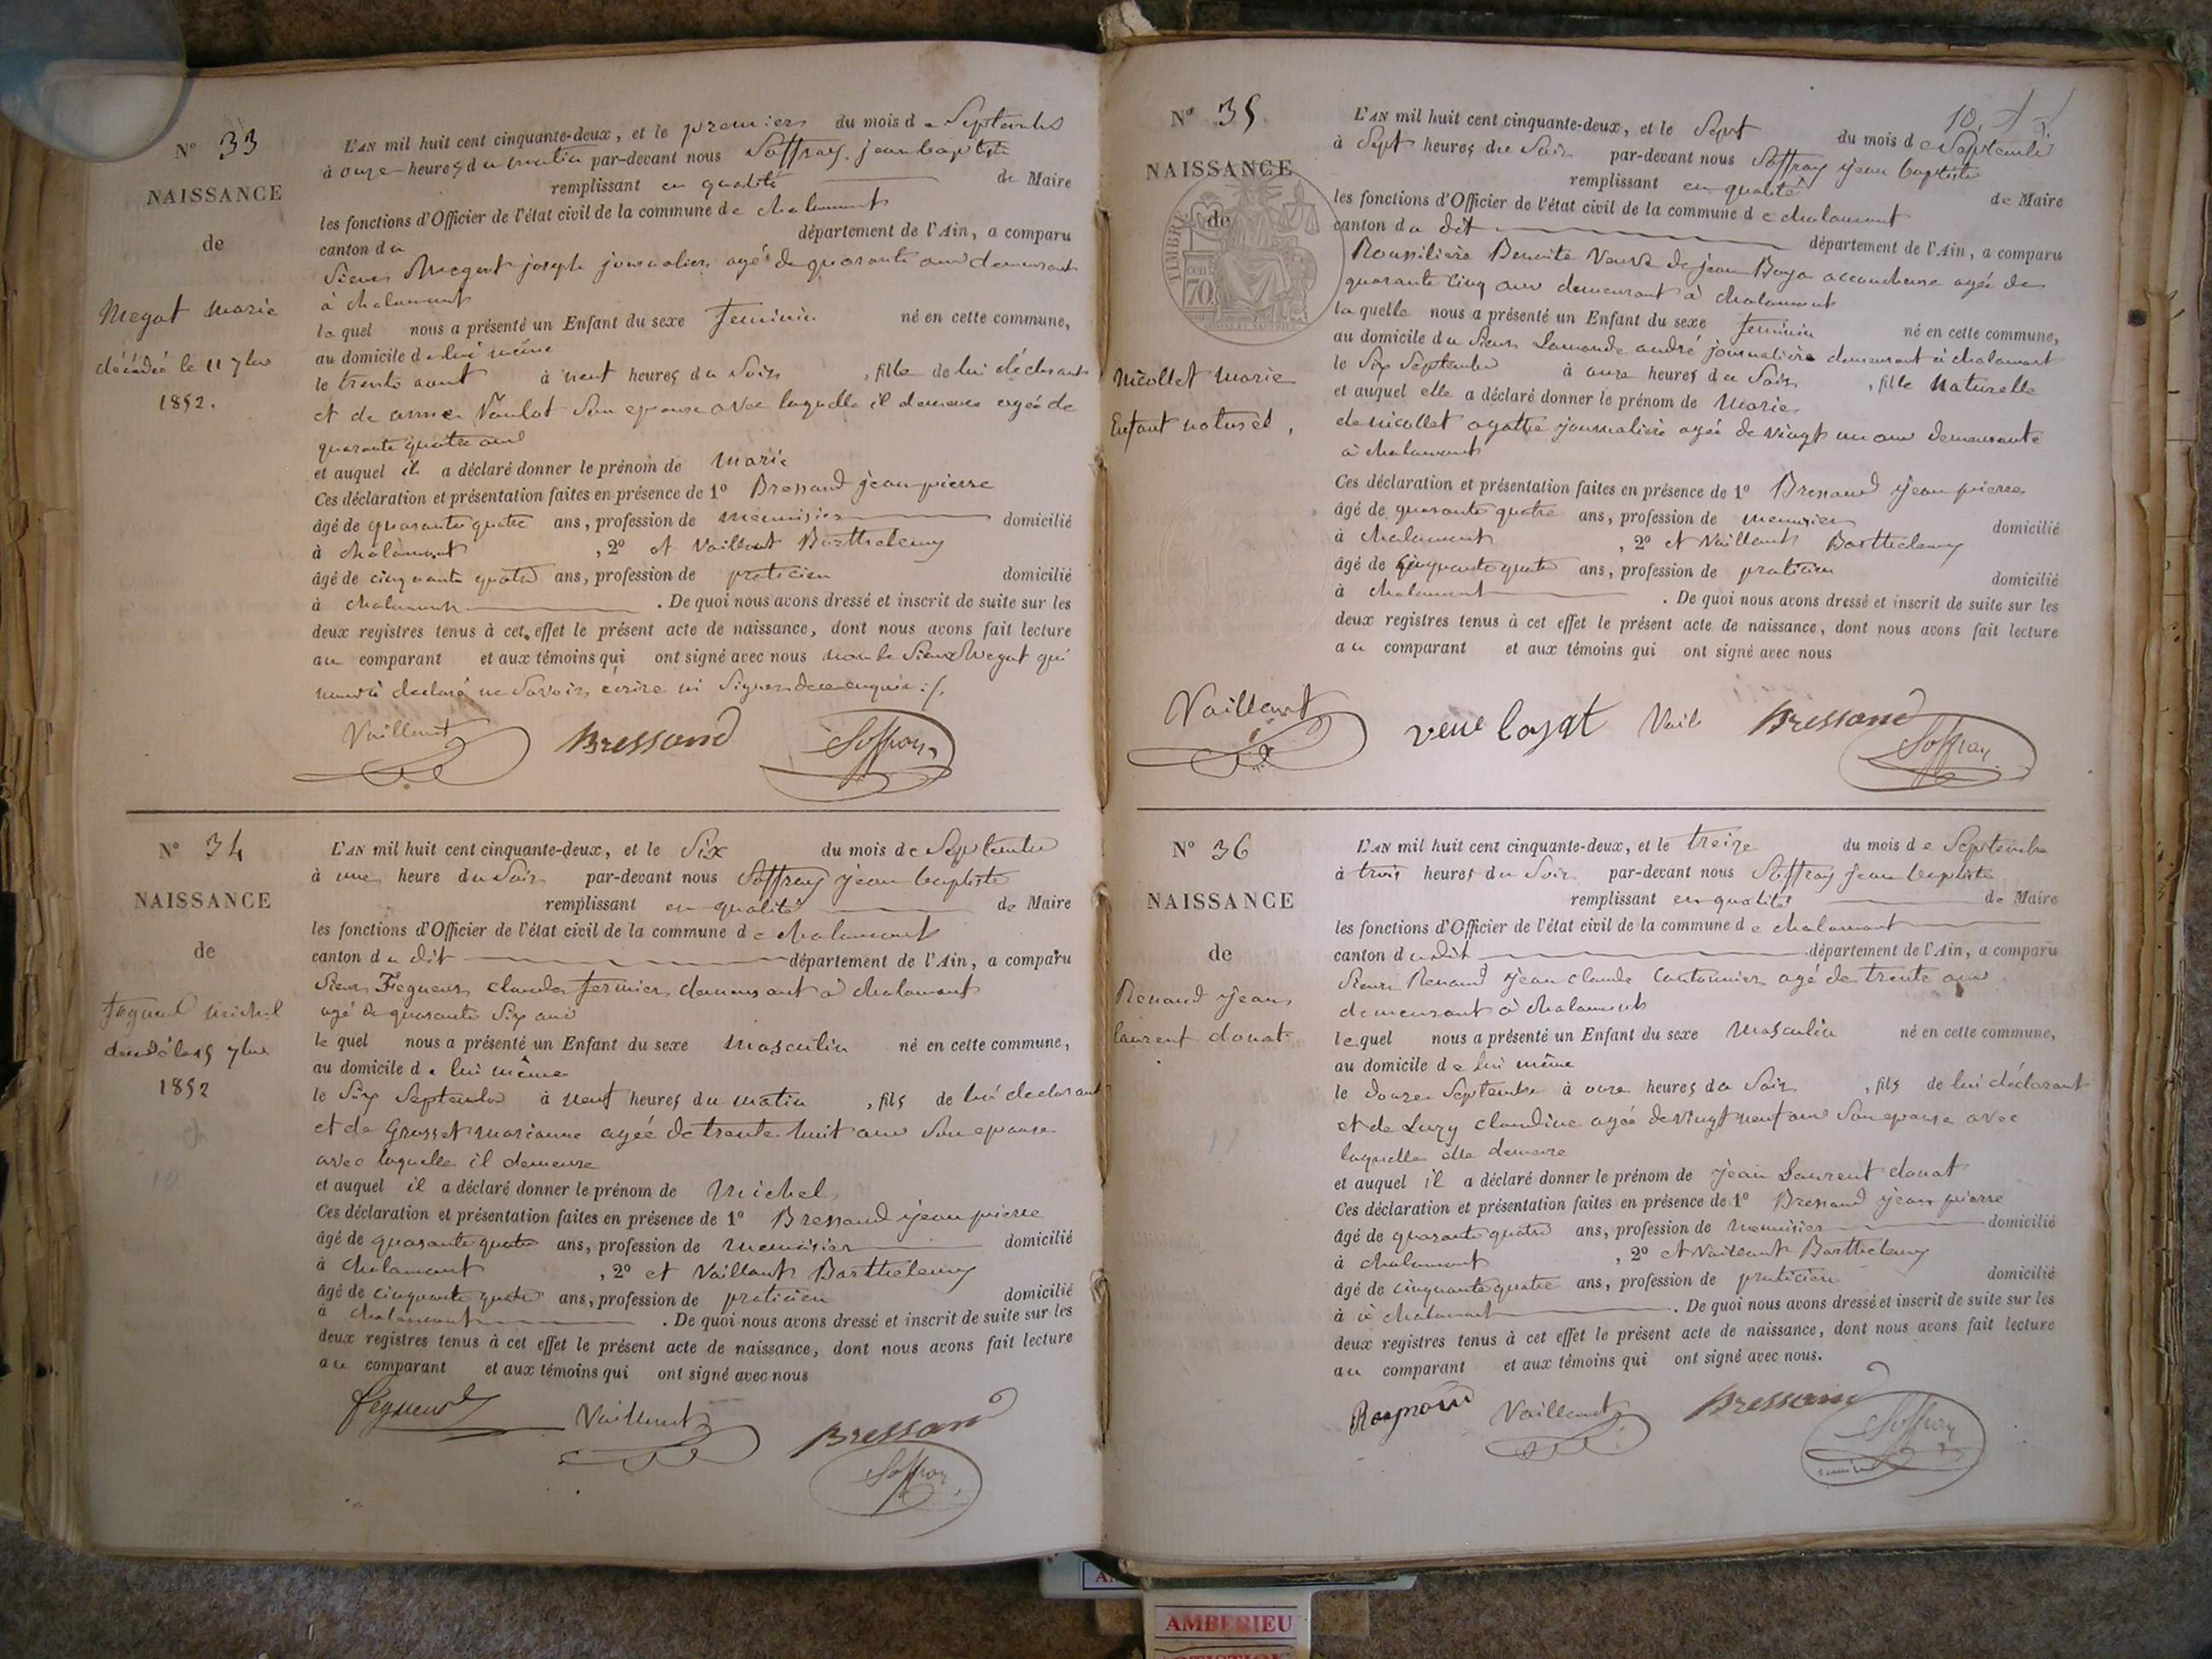 N° 33
NAISSANCE
de
Megat Marie
décédée le 11 7bre
1852.
L'AN mil huit cent cinquante-deux, et le premier du mois de Septembre
à onze heures du matin par-devant nous Soffray jean baptiste
remplissant en qualité de Maire
les fonctions d'Officier de l'état civil de la commune de chalamont
canton du département de l'Ain, a comparu
Sieur Megat joseph journalier agé de quarante ans demeurant
à chalamont
lequel nous a présenté un Enfant du sexe feminin né en cette commune,
au domicile de lui même
le trente aout à neuf heures du Soir, fille de lui déclarant
et de Son epouse avec laquelle il demeure agée de
quarante quatre ans
et auquel il a déclaré donner le prénom de Marie
Ces déclaration et présentation faites en présence de 1° Bressand jean pierre
âgé de quarante quatre ans, profession de menuisier domicilié
à chalamont, 2° et Vaillant Barthelemy
âgé de cinquante quatre ans, profession de praticien domicilié
à chalamont. De quoi nous avons dressé et inscrit de suite sur les
deux registres tenus à cet effet le présent acte de naissance, dont nous avons fait lecture
au comparant et aux témoins qui ont signé avec nous non le Sieur Megat qui
déclaré ne Savoir écrire ni Signer de ce enquis ./.
Vaillant Bressand Soffray
N° 34
NAISSANCE
de
Michel
7bre
1852
L'AN mil huit cent cinquante-deux, et le Six du mois de Septembre
à une heure du Soir par-devant nous Soffray jean baptiste
remplissant en qualité de Maire
les fonctions d'Officier de l'état civil de la commune de chalamont
canton du dit département de l'Ain, a comparu
Sieur claude fermier demeurant à chalamont
agé de quarante Six ans
lequel nous a présenté un Enfant du sexe Masculin né en cette commune,
au domicile de lui même
le Six Septembre à neuf heures du matin, fils de lui declarant
et de Grosset marianne agée de trente huit ans Son epouse
avec laquelle il demeure
et auquel il a déclaré donner le prénom de Michel
Ces déclaration et présentation faites en présence de 1° Bressand jean pierre
âgé de quarante quatre ans, profession de menuisier domicilié
à chalamont, 2° et Vaillant Barthelemy
âgé de cinquante quatre ans, profession de praticien domicilié
à chalamont. De quoi nous avons dressé et inscrit de suite sur les
deux registres tenus à cet effet le présent acte de naissance, dont nous avons fait lecture
au comparant et aux témoins qui ont signé avec nous
Vaillant Bressand
Soffray
10
N° 35
NAISSANCE
de
TIMBRE
70
Nicollet Marie
Enfant naturel,
L'AN mil huit cent cinquante-deux, et le Sept du mois de Septembre
à Sept heures du Soir par-devant nous Soffray jean baptiste
remplissant en qualité de Maire
les fonctions d'Officier de l'état civil de la commune de chalamont
canton du dit département de l'Ain, a comparu
Benoite Veuve de jean accoucheuse agée de
quarante cinq ans demeurant à chalamont
laquelle nous a présenté un Enfant du sexe feminin né en cette commune,
au domicile du Sieur andré demeurant à chalamont
le Six Septembre à onze heures du Soir, fille Naturelle
et auquel elle a déclaré donner le prénom de Marie
de nicollet agathe journaliere agée de vingt un ans demeurante
à chalamont
Ces déclaration et présentation faites en présence de 1° Bressand jean pierre
âgé de quarante quatre ans, profession de menuisier domicilié
à chalamont, 2° et Vaillant Barthelemy
âgé de cinquante quatre ans, profession de praticien domicilié
à chalamont. De quoi nous avons dressé et inscrit de suite sur les
deux registres tenus à cet effet le présent acte de naissance, dont nous avons fait lecture
au comparant et aux témoins qui ont signé avec nous
Vaillant Bressand
Soffray
N° 36
NAISSANCE
de
Renaud Jean
laurent donat
L'AN mil huit cent cinquante-deux, et le treize du mois de Septembre
à trois heures du Soir par-devant nous Soffray Jean baptiste
remplissant en qualité de Maire
les fonctions d'Officier de l'état civil de la commune de chalamont
canton du dit département de l'Ain, a comparu
Sieur Renaud jean claude Cantonnier agé de trente ans
demeurant à chalamont
lequel nous a présenté un Enfant du sexe Masculin né en cette commune,
au domicile de lui même
le douze Septembre à onze heures du Soir, fils de lui déclarant
et de Luzy claudine agée de vingt neuf ans Son epouse avec
laquelle elle demeure
et auquel il a déclaré donner le prénom de jean Laurent donat
Ces déclaration et présentation faites en présence de 1° Bressand jean pierre
âgé de quarante quatre ans, profession de menuisier domicilié
à chalamont, 2° et Vaillant Barthelemy
âgé de cinquante quatre ans, profession de praticien domicilié
à à chalamont. De quoi nous avons dressé et inscrit de suite sur les
deux registres tenus à cet effet le présent acte de naissance, dont nous avons fait lecture
au comparant et aux témoins qui ont signé avec nous.
Vaillant Bressand
Soffray
AMBERIEU